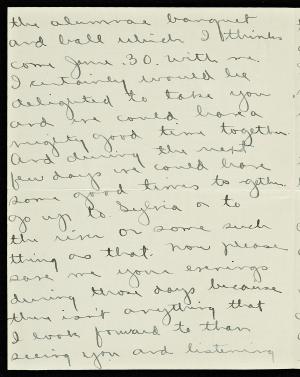 the alumnae banquet
and ball which I thinks
come June .30. with me.
I certainly would be
delighted to take you
and we could have a
mighty good time together.
And during the next
few days we could have
some good times together.
go up to Sylvia or to
the river or some such
thing as that. Now please
save me your evenings
during those days because
there isn't anything that
I look forward to than
seeing you and listening